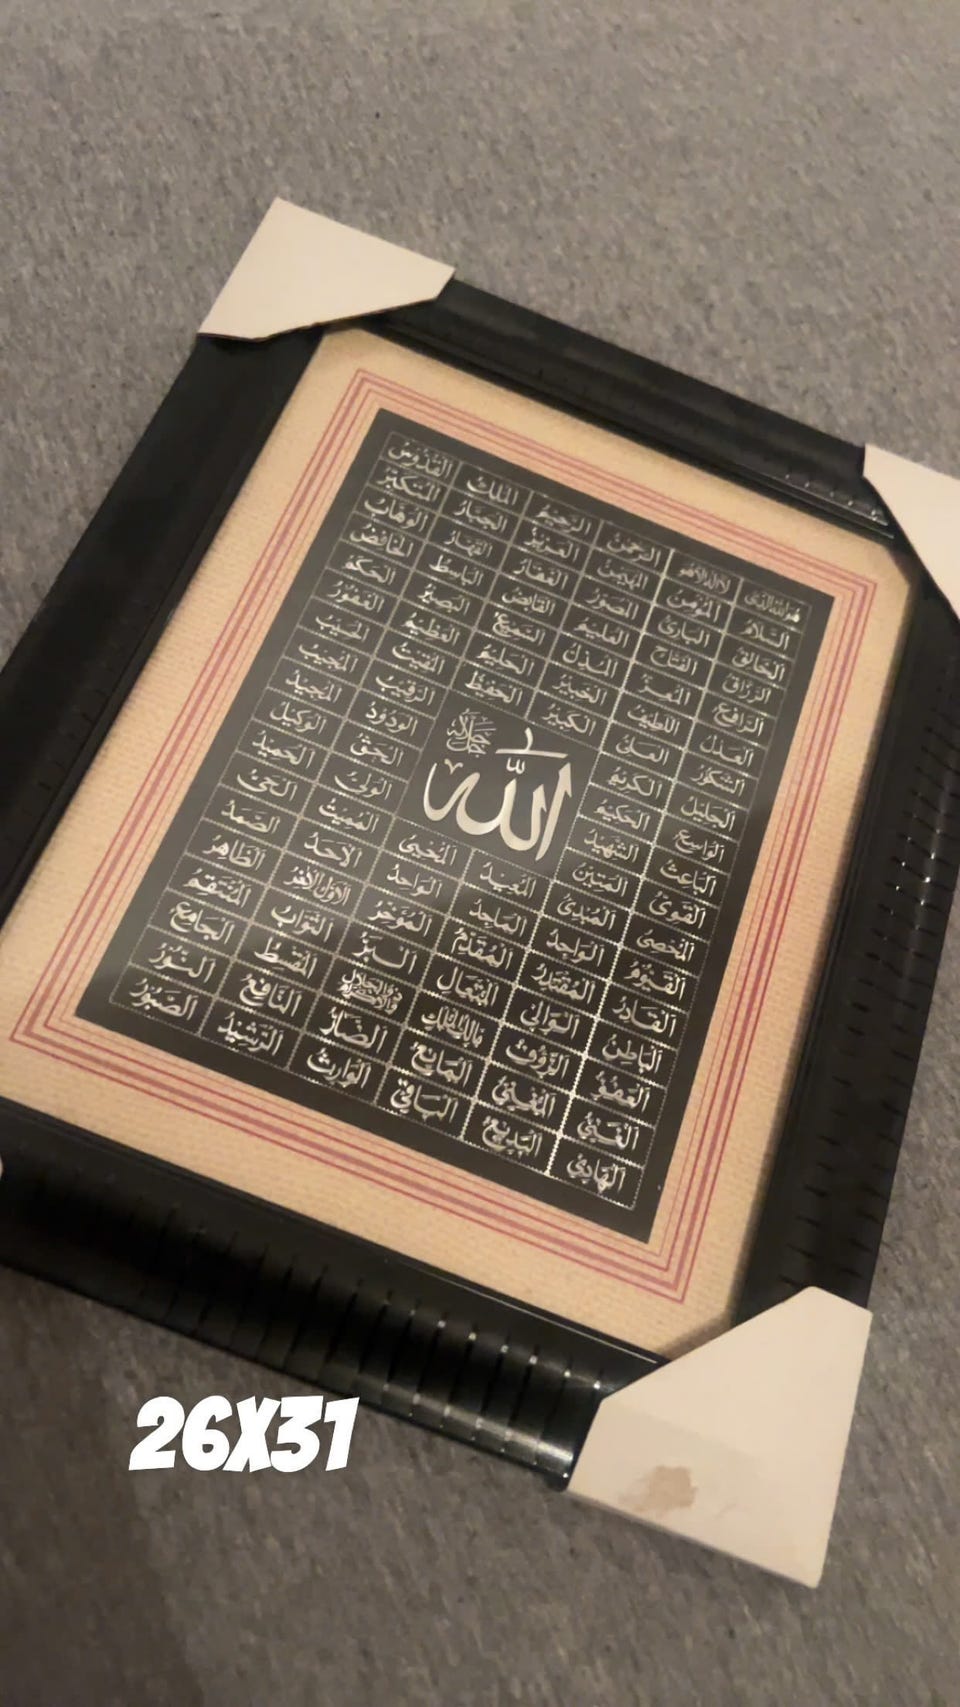 هُوَ اللهُ الَّذِي لَا إِلَهَ إِلَّا هُوَ الرَّحْمٰنُ الرَّحِيمُ الْمَلِكُ الْقُدُّوسُ
السَّلَامُ الْمُؤْمِنُ الْمُهَيْمِنُ الْعَزِيزُ الْجَبَّارُ الْمُتَكَبِّرُ
الْخَالِقُ الْبَارِئُ الْمُصَوِّرُ الْغَفَّارُ الْقَهَّارُ الْوَهَّابُ
الرَّزَّاقُ الْفَتَّاحُ الْعَلِيمُ الْقَابِضُ الْبَاسِطُ الْخَافِضُ
الرَّافِعُ الْمُعِزُّ الْمُذِلُّ السَّمِيعُ الْبَصِيرُ الْحَكَمُ
الْعَدْلُ اللَّطِيفُ الْخَبِيرُ الْحَلِيمُ الْعَظِيمُ الْغَفُورُ
الشَّكُورُ الْعَلِيُّ الْكَبِيرُ الْحَفِيظُ الْمُقِيتُ الْحَسِيبُ
الْجَلِيلُ الْكَرِيمُ الرَّقِيبُ الْمُجِيبُ
الْوَاسِعُ الْحَكِيمُ الْوَدُودُ الْمَجِيدُ
الله جل جلاله
الْبَاعِثُ الشَّهِيدُ الْحَقُّ الْوَكِيلُ
الْقَوِيُّ الْمَتِينُ الْوَلِيُّ الْحَمِيدُ
الْمُحْصِي الْمُبْدِئُ الْمُعِيدُ الْمُحْيِي الْمُمِيتُ الْحَيُّ
الْقَيُّومُ الْوَاجِدُ الْمَاجِدُ الْوَاحِدُ الْأَحَدُ الصَّمَدُ
الْقَادِرُ الْمُقْتَدِرُ الْمُقَدِّمُ الْمُؤَخِّرُ الْأَوَّلُ الْآخِرُ الظَّاهِرُ
الْبَاطِنُ الْوَالِي الْمُتَعَالُ الْبَرُّ التَّوَّابُ الْمُنْتَقِمُ
الْعَفُوُّ الرَّؤُوفُ مَالِكُ الْمُلْكِ ذُو الْجَلَالِ وَالْإِكْرَامِ الْمُقْسِطُ الْجَامِعُ
الْغَنِيُّ الْمُغْنِي الْمَانِعُ الضَّارُّ النَّافِعُ النُّورُ
الْهَادِي الْبَدِيعُ الْبَاقِي الْوَارِثُ الرَّشِيدُ الصَّبُورُ
26X31